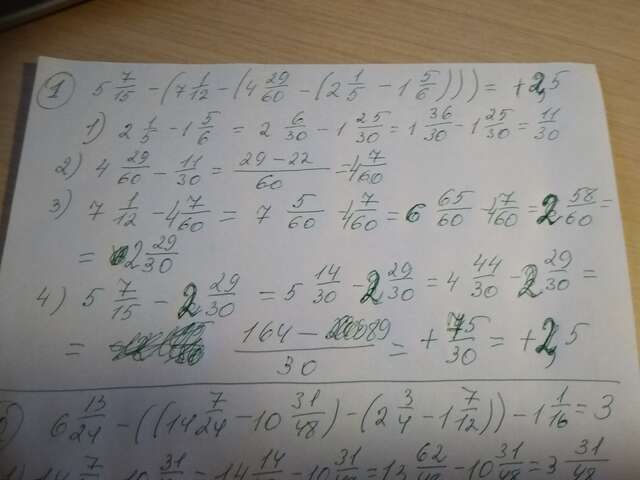 1 5 7/15 - (7 1/12 - (4 29/60 - (2 1/5 - 1 5/6))) = +2,5
1) 2 1/5 - 1 5/6 = 2 6/30 - 1 25/30 = 1 36/30 - 1 25/30 = 11/30
2) 4 29/60 - 11/30 = (29-22)/60 = 4 7/60
3) 7 1/12 - 4 7/60 = 7 5/60 - 4 7/60 = 6 65/60 - 4 7/60 = 2 58/60 =
= 2 29/30
4) 5 7/15 - 2 29/30 = 5 14/30 - 2 29/30 = 4 44/30 - 2 29/30 =
= (164 - 89)/30 = + 75/30 = +2,5
6 13/24 - ((14 7/24 - 10 31/48) - (2 3/4 - 1 7/12)) - 1 1/16 = 3
14 7/ - 10 31/ = 14 14/ - 10 31/48 = 13 62/48 - 10 31/48 = 3 31/48